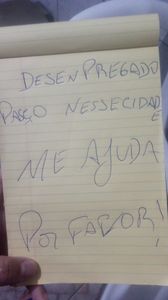 DESENPREGADO
PASÇO NESSECIDADE
ME AJUDA
POR FAVOR!